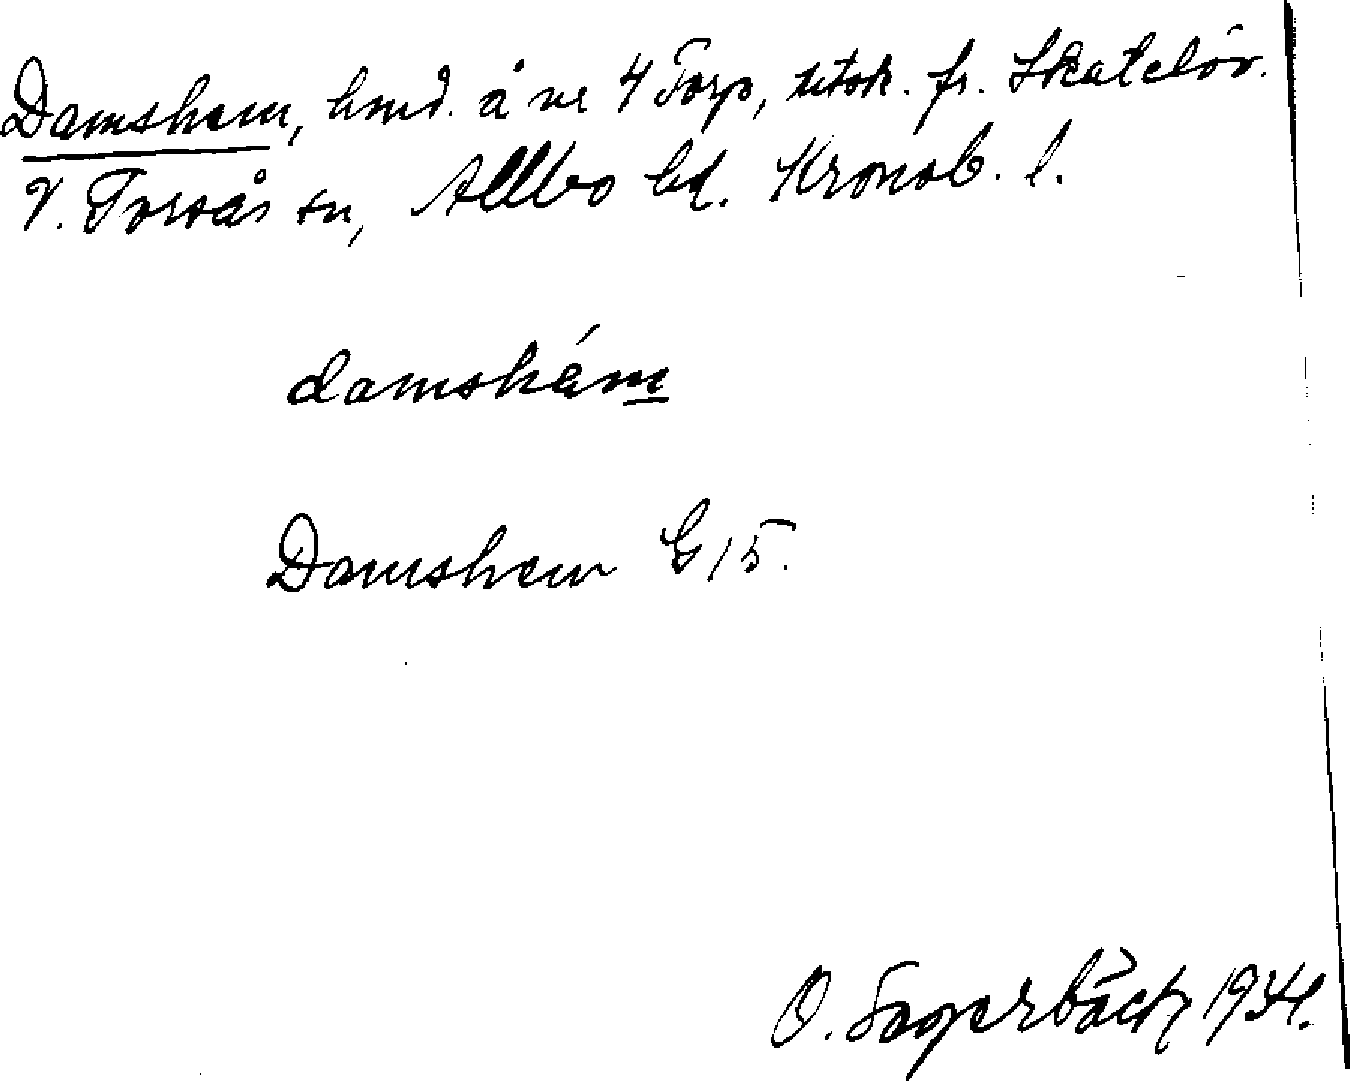 Damshem, lmd. å nr 4 Torp, utsk. fr. Skatelöv.
V. Torsås sn, Allbo hd. Kronob. l.
damshám
Damshem G 15.
O. Fagerbäck 1934.